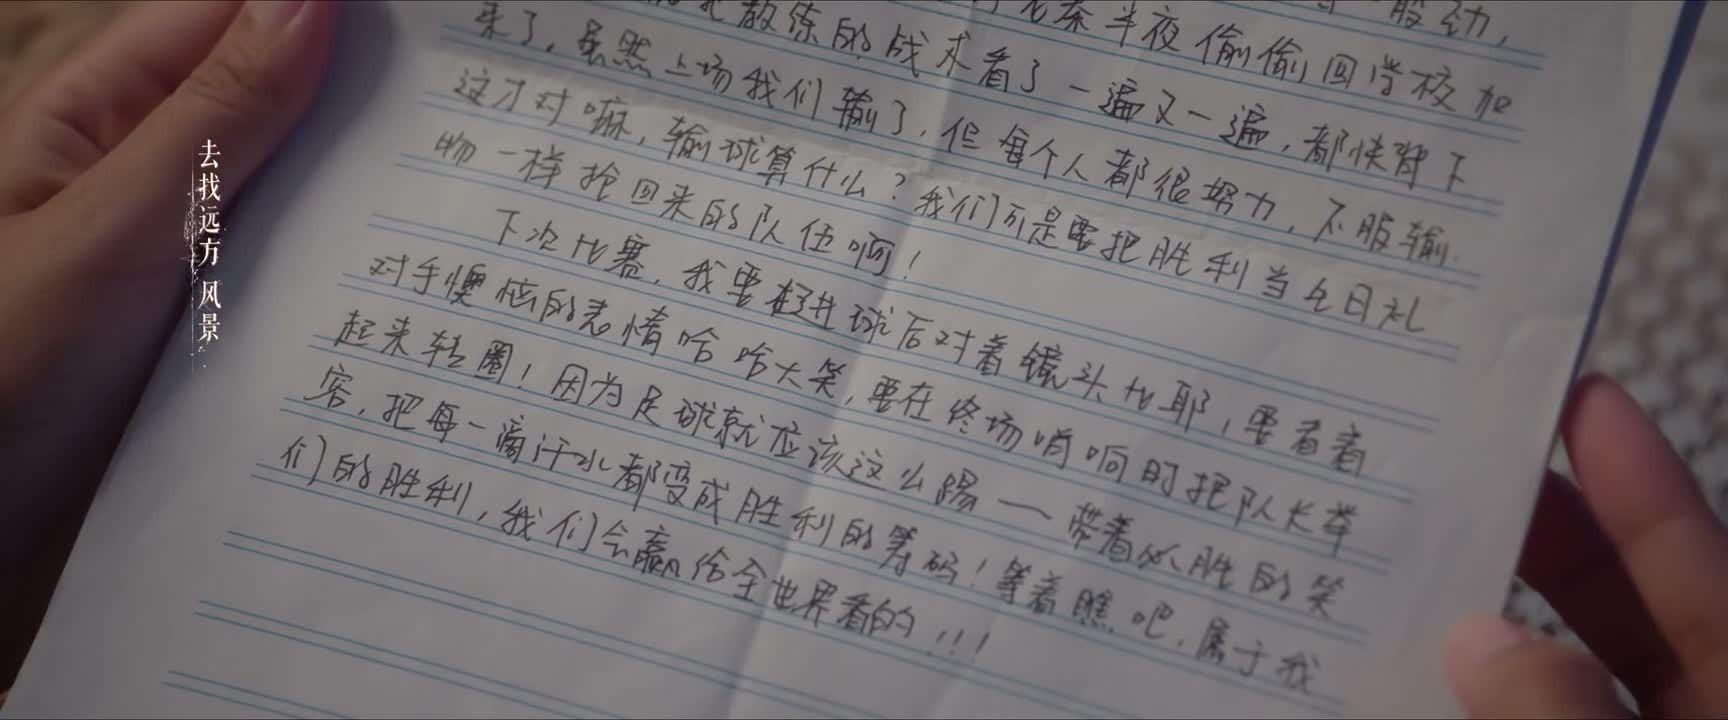 股劲，
半夜偷偷回学校加
教练的战术看了一遍又一遍，都快背下
来了，虽然上场我们输了，但每个人都很努力，不服输.
这才对嘛，输球算什么？我们可是要把胜利当生日礼
物一样抢回来的队伍啊！
下次比赛，我要在进球后对着镜头比耶，要看着
对手懊恼的表情哈哈大笑，要在终场哨响时把队长举
起来转圈！因为足球就应该这么踢——带着必胜的笑
容，把每一滴汗水都变成胜利的筹码！等着瞧吧，属于我
们的胜利，我们会赢给全世界看的！！！
去找远方 风景